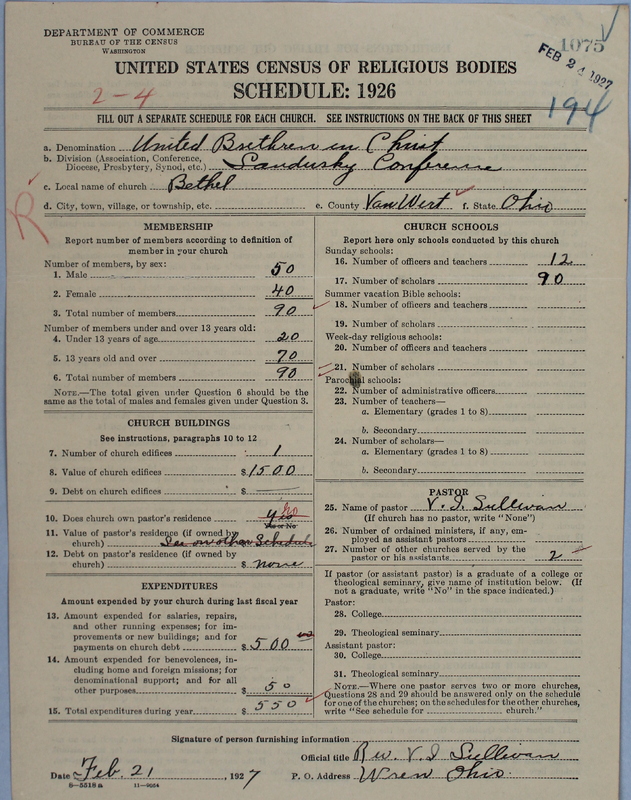 DEPARTMENT OF COMMERCE
BUREAU OF THE CENSUS
WASHINGTON
1075
FEB 24 1927
UNITED STATES CENSUS OF RELIGIOUS BODIES
2-4
SCHEDULE: 1926
194
FILL OUT A SEPARATE SCHEDULE FOR EACH CHURCH. SEE INSTRUCTIONS ON THE BACK OF THIS SHEET
a. Denomination United Brethren in Christ
b. Division (Association, Conference, Diocese, Presbytery, Synod, etc.) Sandusky Conference
c. Local name of church Bethel
R
d. City, town, village, or township, etc. e. County Van Wert f. State Ohio
MEMBERSHIP
Report number of members according to definition of
member in your church
Number of members, by sex:
1. Male 50
2. Female 40
3. Total number of members 90
Number of members under and over 13 years old:
4. Under 13 years of age 20
5. 13 years old and over 70
6. Total number of members 90
NOTE.—The total given under Question 6 should be
same as the total of males and females given under Question 3.
CHURCH BUILDINGS
See instructions, paragraphs 10 to 12
7. Number of church edifices 1
8. Value of church edifices $1500
9. Debt on church edifices $
10. Does church own pastor's residence yes no
Yes or No
11. Value of pastor's residence (if owned by
church) See on other Schedule
12. Debt on pastor's residence (if owned by
church) $ none
EXPENDITURES
Amount expended by your church during last fiscal year
13. Amount expended for salaries, repairs,
and other running expenses; for im-
provements or new buildings; and for
payments on church debt $ 500
14. Amount expended for benevolences, in-
cluding home and foreign missions; for
denominational support; and for all
other purposes $ 50
15. Total expenditures during year $ 550
CHURCH SCHOOLS
Report here only schools conducted by this church
Sunday schools:
16. Number of officers and teachers 12
17. Number of scholars 90
Summer vacation Bible schools:
18. Number of officers and teachers
19. Number of scholars
Week-day religious schools:
20. Number of officers and teachers
21. Number of scholars
Parochial schools:
22. Number of administrative officers
23. Number of teachers—
a. Elementary (grades 1 to 8)
b. Secondary
24. Number of scholars—
a. Elementary (grades 1 to 8)
b. Secondary
PASTOR
25. Name of pastor V. I. Sullivan
(If church has no pastor, write "None")
26. Number of ordained ministers, if any, em-
ployed as assistant pastors
27. Number of other churches served by the
pastor or his assistants 2
If pastor (or assistant pastor) is a graduate of a college or
theological seminary, give name of institution below. (If
not a graduate, write "No" in the space indicated.)
Pastor:
28. College
29. Theological seminary
Assistant pastor:
30. College
31. Theological seminary
NOTE.—Where one pastor serves two or more churches,
Questions 28 and 29 should be answered only on the schedule
for one of the churches; on the schedules for the other churches,
write "See schedule for church."
Signature of person furnishing information
Official title Rev. V. I Sullivan
Date Feb. 21 1927 P. O. Address Wren Ohio.
8-5518 a 11-9054